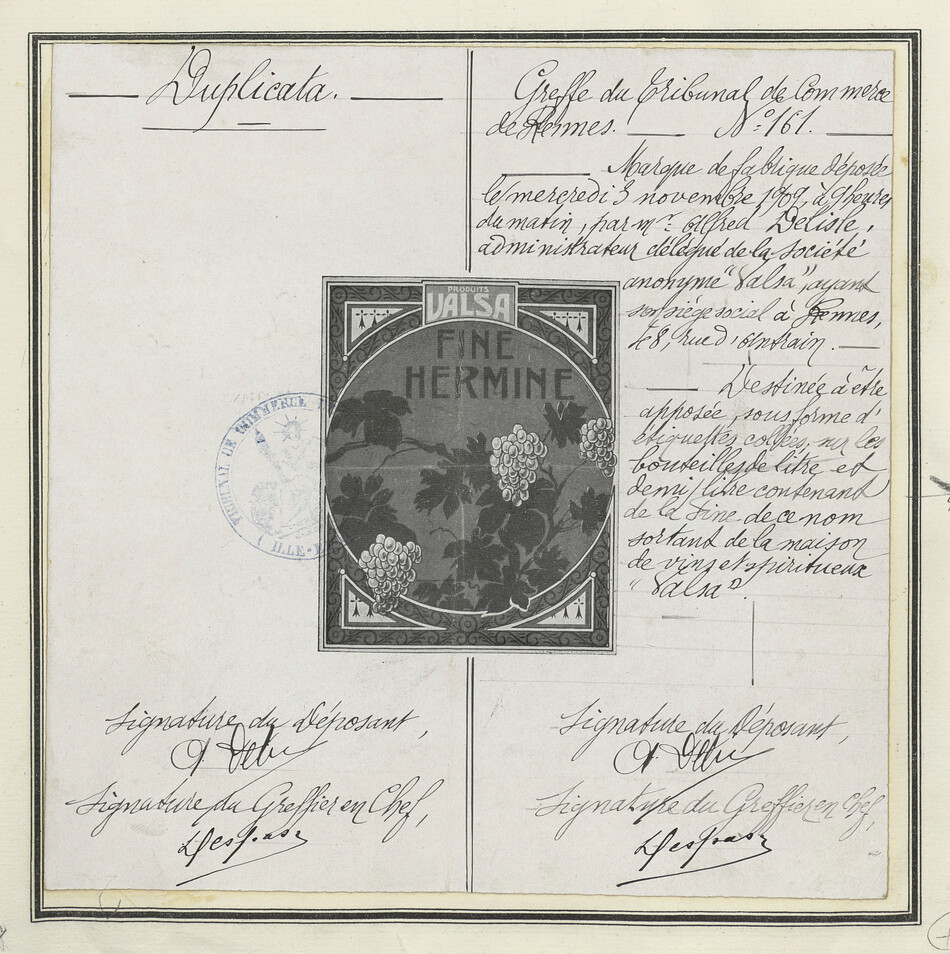 Duplicata.
Greffe du Tribunal de Commerce
de Rennes. N° 161.
Marque de fabrique déposée
le mercredi 3 novembre 1909, à 9 heures
du matin, par Mr. Alfred Delisle,
administrateur délégué de la société
anonyme "Valsa", ayant
son siège social à Rennes,
48, rue d'Antrain.
Destinée à être
apposée, sous forme d'
étiquettes collées, sur les
bouteilles de litre et
demi/litre contenant
de la fine de ce nom
sortant de la maison
de vins et spiritueux
"Valsa".
PRODUITS
VALSA
FINE
HERMINE
TRIBUNAL DE COMMERCE
(ILLE-
Signature du Déposant,
Signature du Greffier en Chef,
Signature du Déposant,
Signature du Greffier en Chef,